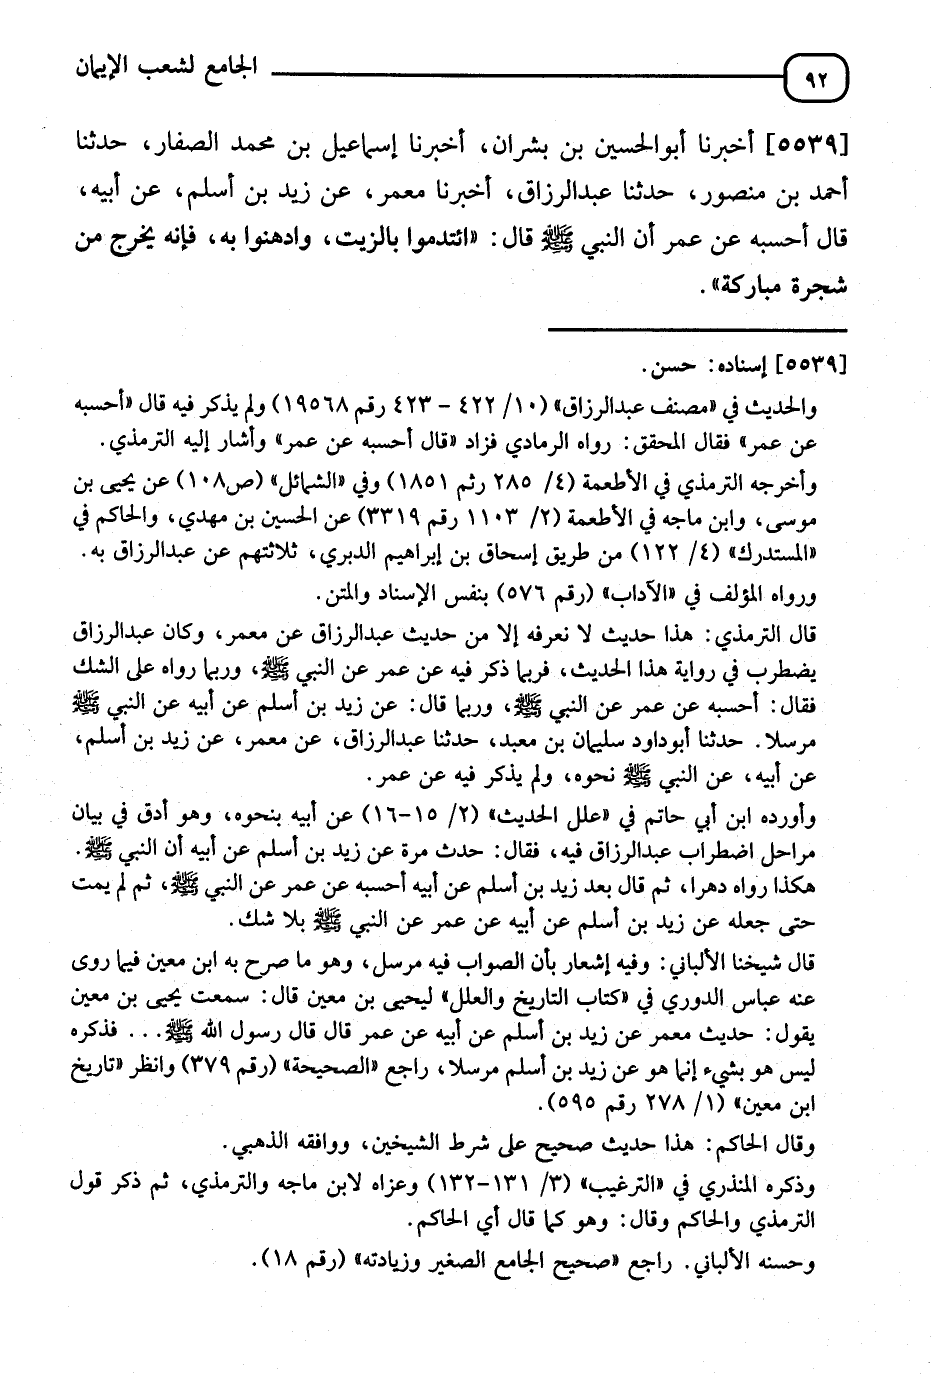 ٩٢
الجامع لشعب الإيمان
[٥٥٣٩] أخبرنا أبوالحسين بن بشران، أخبرنا إسماعيل بن محمد الصفار، حدثنا
أحمد بن منصور، حدثنا عبدالرزاق، أخبرنا معمر، عن زيد بن أسلم، عن أبيه،
قال أحسبه عن عمر أن النبي ﷺ قال: «ائتدموا بالزيت، وادهنوا به، فإنه يخرج من
شجرة مباركة».
[٥٥٣٩] إسناده: حسن.
والحديث في «مصنف عبدالرزاق» (١٠/ ٤٢٢ - ٤٢٣ رقم ١٩٥٦٨) ولم يذكر فيه قال «أحسبه
عن عمر» فقال المحقق: رواه الرمادي فزاد «قال أحسبه عن عمر» وأشار إليه الترمذي.
وأخرجه الترمذي في الأطعمة (٤/ ٢٨٥ رثم ١٨٥١) وفي «الشمائل» (ص١٠٨) عن يحيى بن
موسى، وابن ماجه في الأطعمة (٢/ ١١٠٣ رقم ٣٣١٩) عن الحسين بن مهدي، والحاكم في
«المستدرك» (٤/ ١٢٢) من طريق إسحاق بن إبراهيم الدبري، ثلاثتهم عن عبدالرزاق به.
ورواه المؤلف في «الآداب» (رقم ٥٧٦) بنفس الإسناد والمتن.
قال الترمذي: هذا حديث لا نعرفه إلا من حديث عبدالرزاق عن معمر، وكان عبدالرزاق
يضطرب في رواية هذا الحديث، فربما ذكر فيه عن عمر عن النبي ﷺ، وربما رواه على الشك
فقال: أحسبه عن عمر عن النبي ﷺ، وربما قال: عن زيد بن أسلم عن أبيه عن النبي ﷺ
مرسلا. حدثنا أبوداود سليمان بن معبد، حدثنا عبدالرزاق، عن معمر، عن زيد بن أسلم،
عن أبيه، عن النبي ﷺ نحوه، ولم يذكر فيه عن عمر.
وأورده ابن أبي حاتم في «علل الحديث» (٢/ ١٥-١٦) عن أبيه بنحوه، وهو أدق في بيان
مراحل اضطراب عبدالرزاق فيه، فقال: حدث مرة عن زيد بن أسلم عن أبيه أن النبي ﷺ.
هكذا رواه دهرا، ثم قال بعد زيد بن أسلم عن أبيه أحسبه عن عمر عن النبي ﷺ، ثم لم يمت
حتى جعله عن زيد بن أسلم عن أبيه عن عمر عن النبي ﷺ بلا شك.
قال شيخنا الألباني: وفيه إشعار بأن الصواب فيه مرسل، وهو ما صرح به ابن معين فيما روى
عنه عباس الدوري في «كتاب التاريخ والعلل» ليحيى بن معين قال: سمعت يحيى بن معين
يقول: حديث معمر عن زيد بن أسلم عن أبيه عن عمر قال قال رسول الله ﷺ... فذكره
ليس هو بشيء إنما هو عن زيد بن أسلم مرسلا، راجع «الصحيحة» (رقم ٣٧٩) وانظر «تاريخ
ابن معين» (١/ ٢٧٨ رقم ٥٩٥).
وقال الحاكم: هذا حديث صحيح على شرط الشيخين، ووافقه الذهبي.
وذكره المنذري في «الترغيب» (٣/ ١٣١-١٣٢) وعزاه لابن ماجه والترمذي، ثم ذكر قول
الترمذي والحاكم وقال: وهو كما قال أي الحاكم.
وحسنه الألباني. راجع «صحيح الجامع الصغير وزيادته» (رقم ١٨).